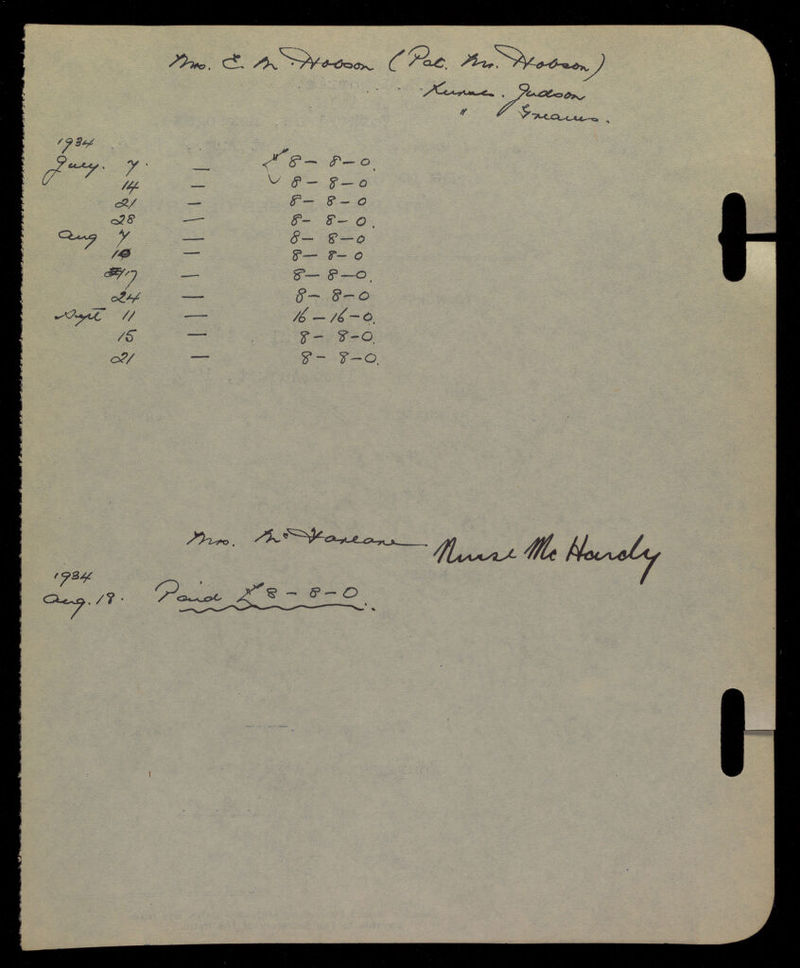 Mrs. E. M. Hobson (Pat. Mrs. Hobson)
Nurses. Judson
" Greaves.
1934
July. 7. — £8-8-0.
14 — 8-8-0
21 — 8-8-0
28 — 8-8-0.
Aug 7 — 8-8-0
10 — 8-8-0
17 — 8-8-0.
24 — 8-8-0
Sept 11 — 16-16-0.
15 — 8-8-0.
21 — 8-8-0.
Mrs. McFarlane Nurse McHardy
1934
Aug. 18. Paid £8-8-0.